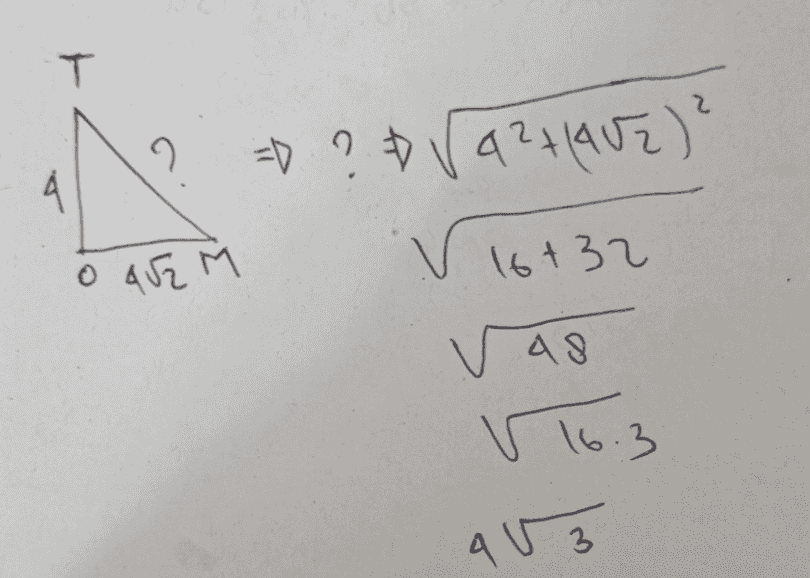 T
4
?
O 4√2 M
⇒ ? ⇒ √4²+(4√2)²
√16+32
√48
√16.3
4√3